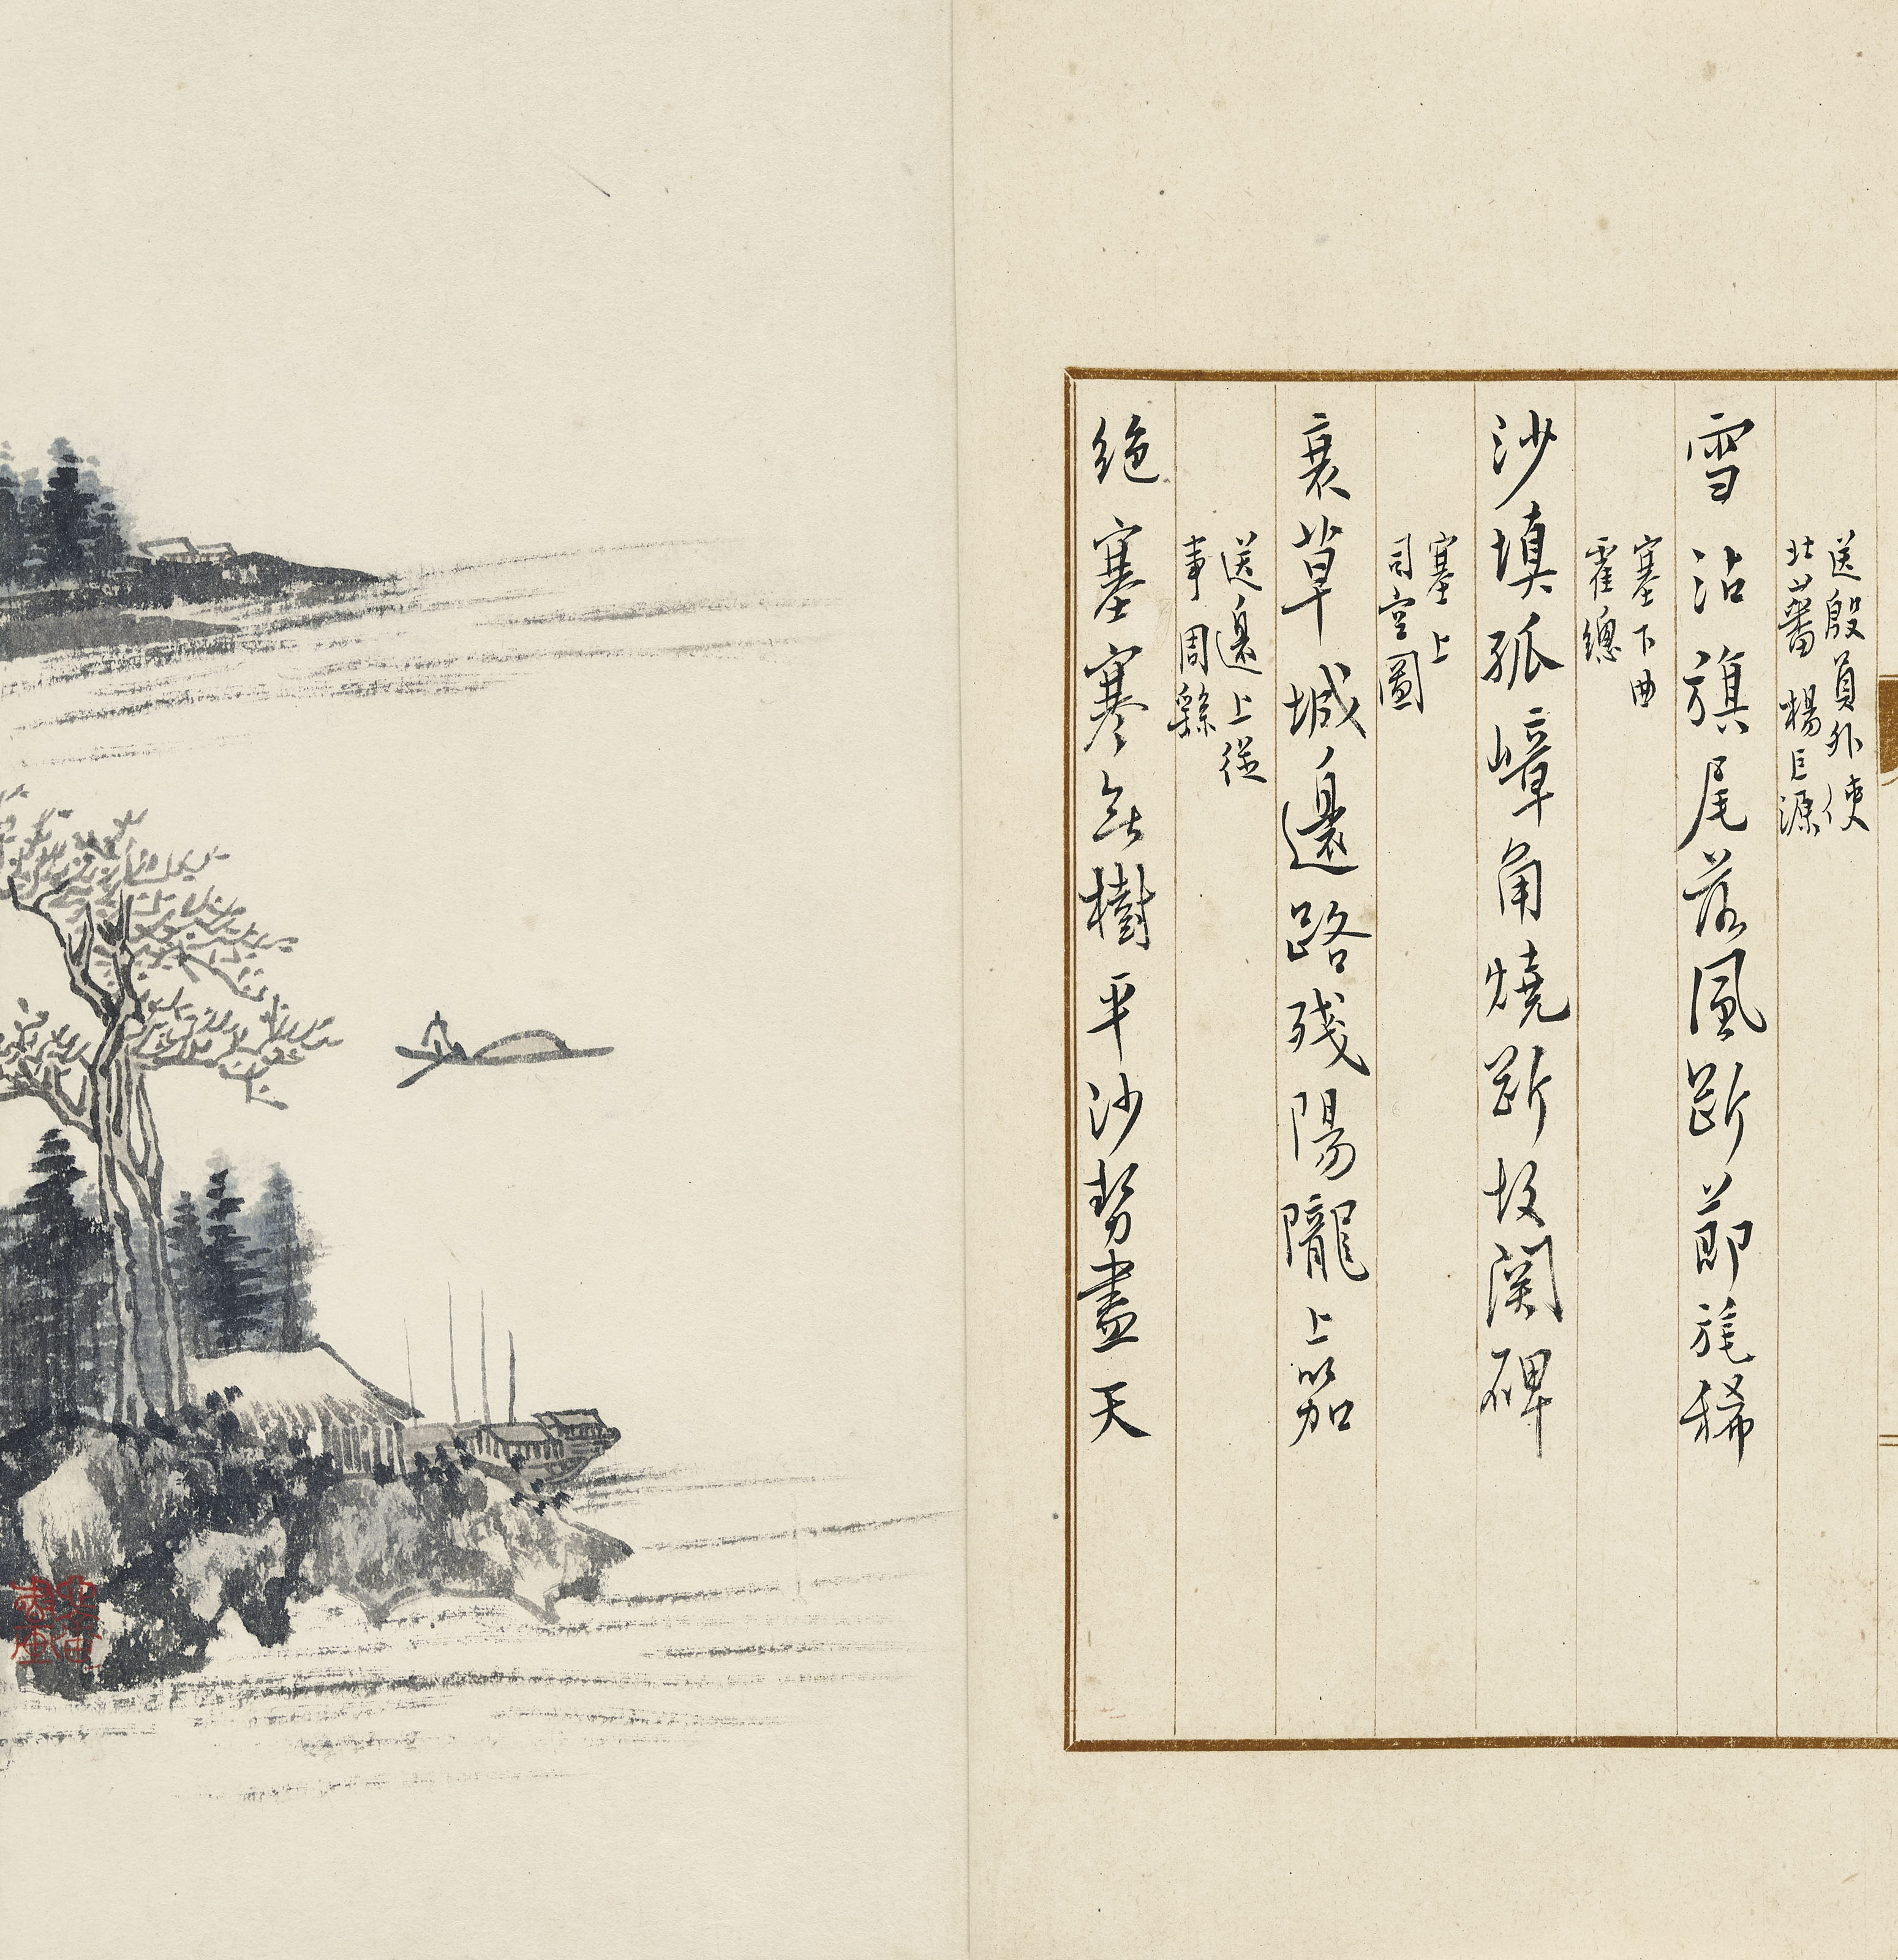 送殷員外使
北蕃 楊巨源
雪沾旗尾落風斷節旄稀
塞下曲
霍總
沙填孤嶂角燒斷故関碑
塞上
司空圖
衰草城邊路殘陽隴上笳
送邊上從
事 周繇
絕塞寒無樹平沙勢盡天